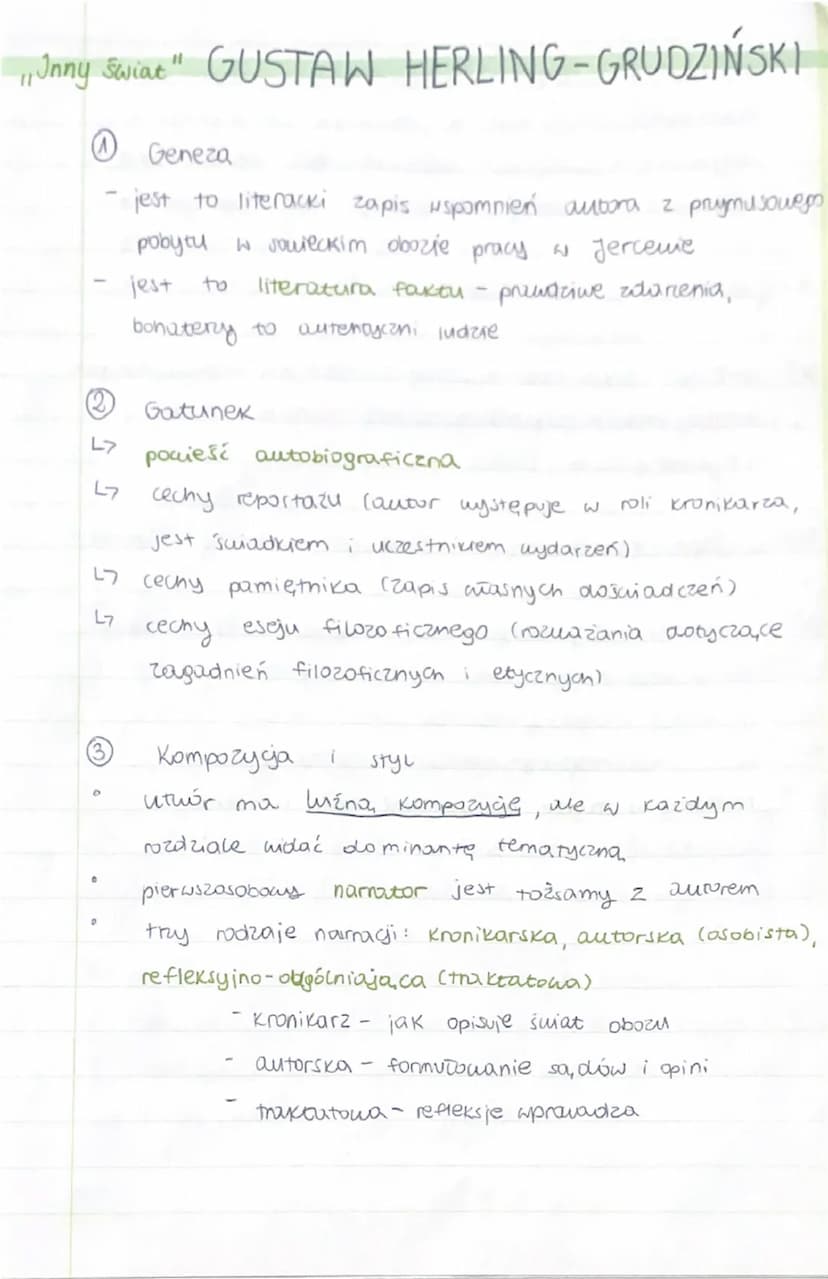 „Inny świat" GUSTAW HERLING-GRUDZIŃSKI
① Geneza
- jest to literacki zapis wspomnień autora z przymusowego
pobytu w sowieckim obozie pracy w Jercewie
- jest to literatura faktu - prawdziwe zdarzenia,
bohaterzy to autentyczni ludzie
② Gatunek
↳ powieść autobiograficzna
↳ cechy reportażu (autor występuje w roli kronikarza,
jest świadkiem i uczestnikiem wydarzeń)
↳ cechy pamiętnika (zapis własnych doświadczeń)
↳ cechy eseju filozoficznego (rozważania dotyczące
zagadnień filozoficznych i etycznych)
③ Kompozycja i styl
° utwór ma luźną kompozycję, ale w każdym
rozdziale widać dominantę tematyczną
° pierwszasobowy narrator jest tożsamy z autorem
° trzy rodzaje narracji: kronikarska, autorska (osobista),
refleksyjno-obgólniająca (traktatowa)
- kronikarz - jak opisuje świat obozu
- autorska - formułowanie sądów i opini
- traktatowa - refleksje wprowadza